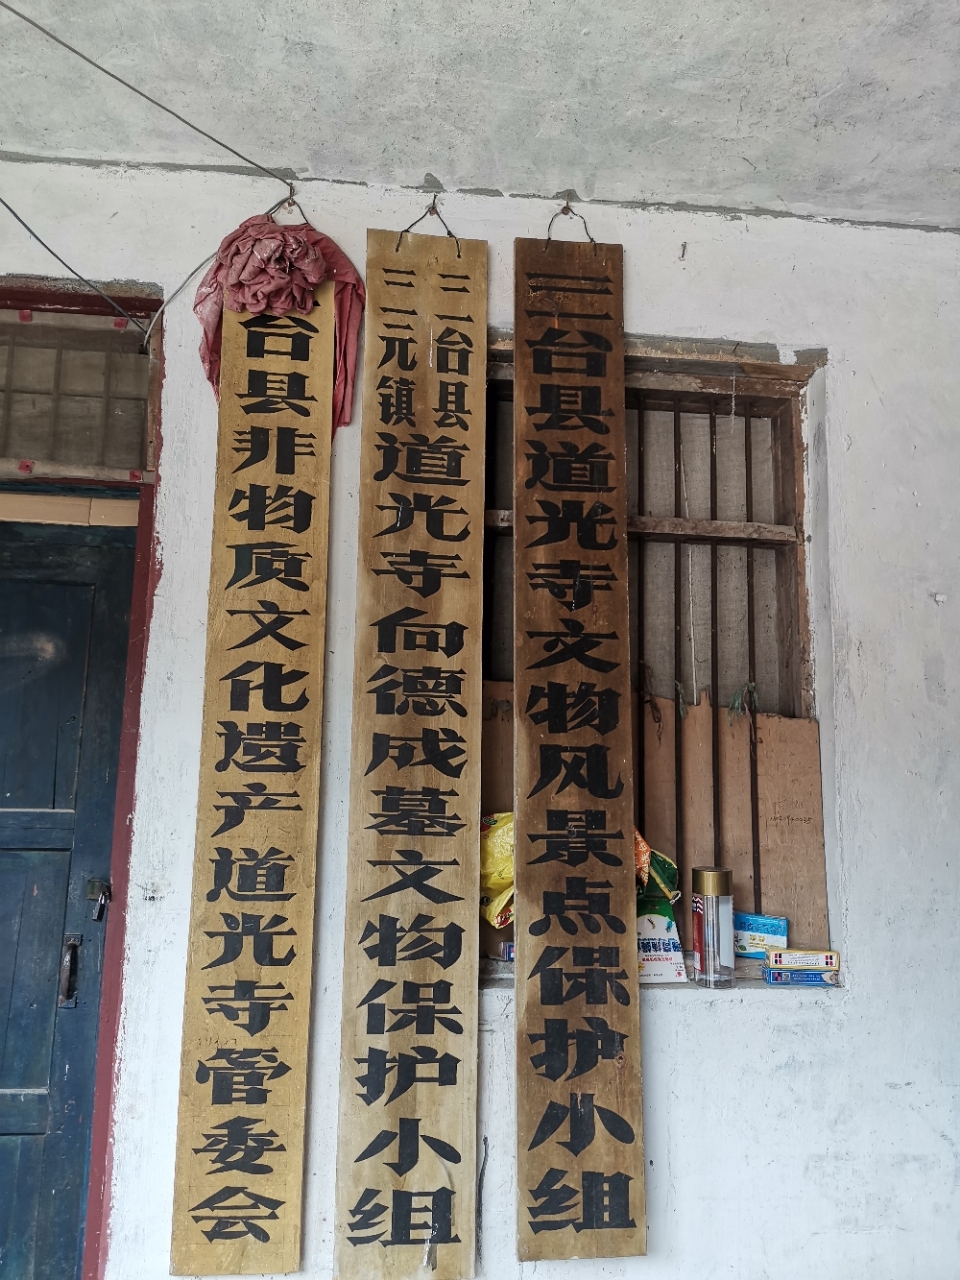 台县非物质文化遗产道光寺管委会
三台县
三元镇
道光寺向德成墓文物保护小组
三台县道光寺文物风景点保护小组